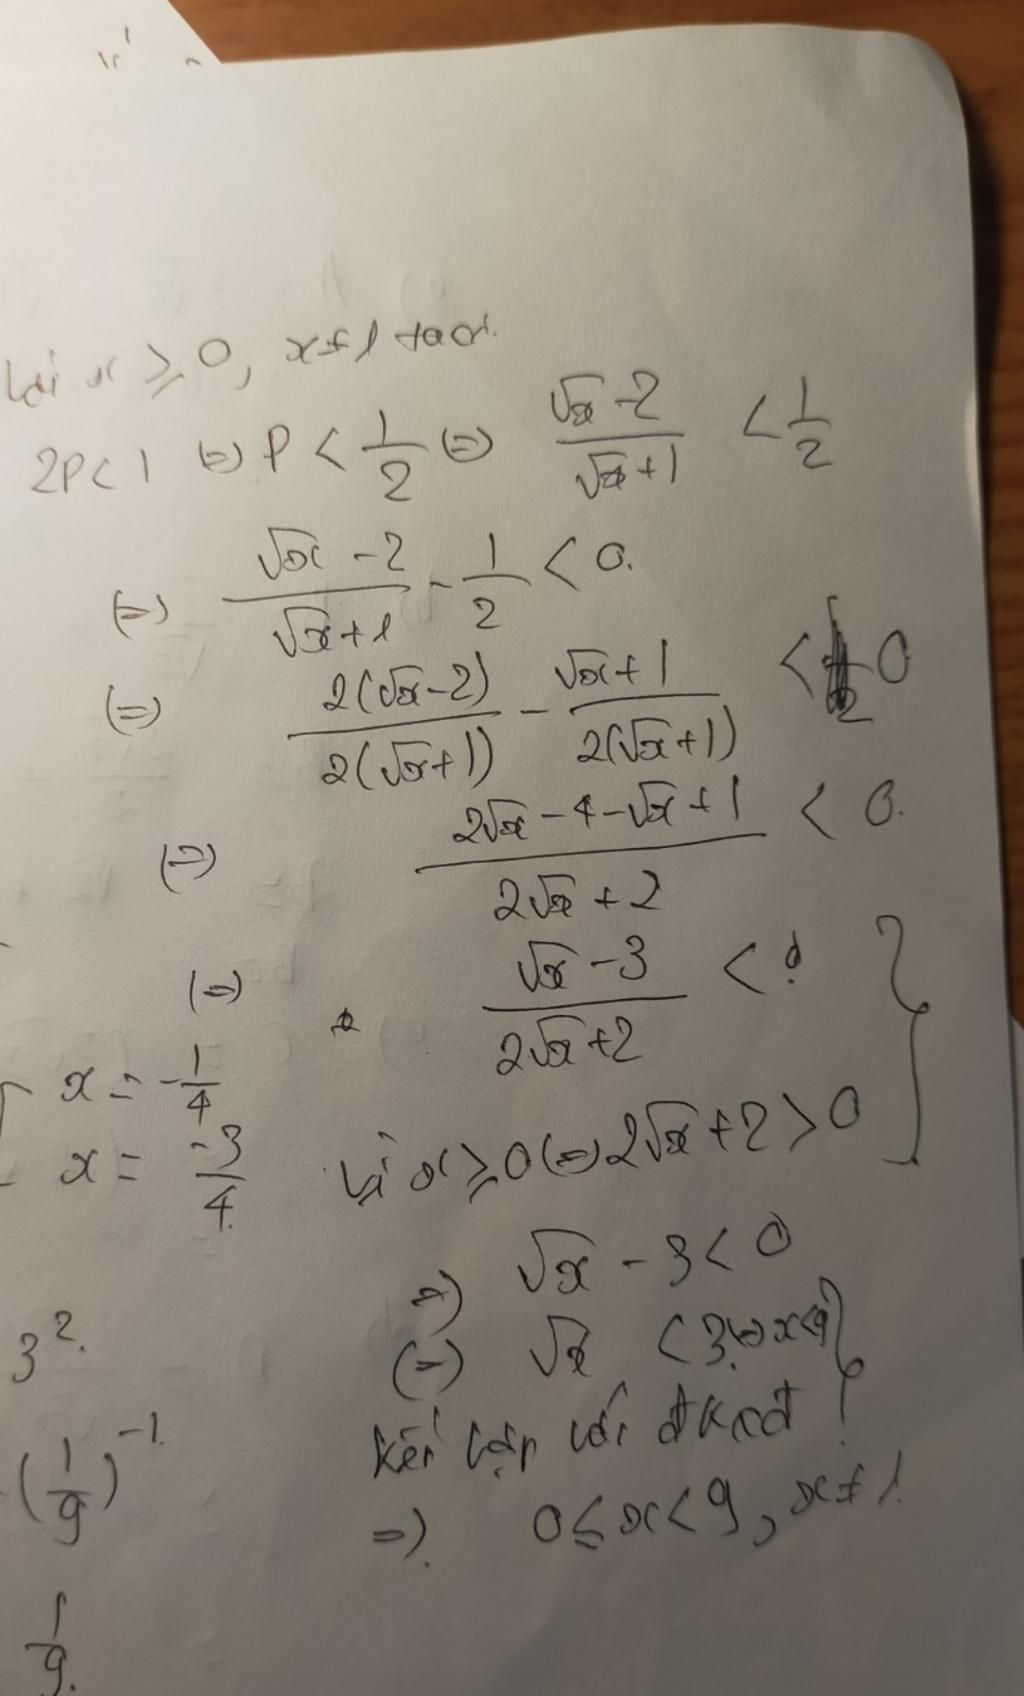 Với x ≥ 0, x ≠ 1 ta có:
2P < 1 (=) P < 1/2 (=) (√x - 2)/(√x + 1) < 1/2
(=) (√x - 2)/(√x + 1) - 1/2 < 0.
(=) 2(√x - 2)/2(√x + 1) - (√x + 1)/2(√x + 1) < 0
(=) (2√x - 4 - √x + 1)/(2√x + 2) < 0.
(=) (√x - 3)/(2√x + 2) < 0
x = -1/4
x = -3/4
Vì x ≥ 0 (=) 2√x + 2 > 0
=) √x - 3 < 0
(=) √x < 3 (=) x < 9
3².
Kết hợp với đkxđ
(1/9)⁻¹
=) 0 ≤ x < 9, x ≠ 1.
1/9.